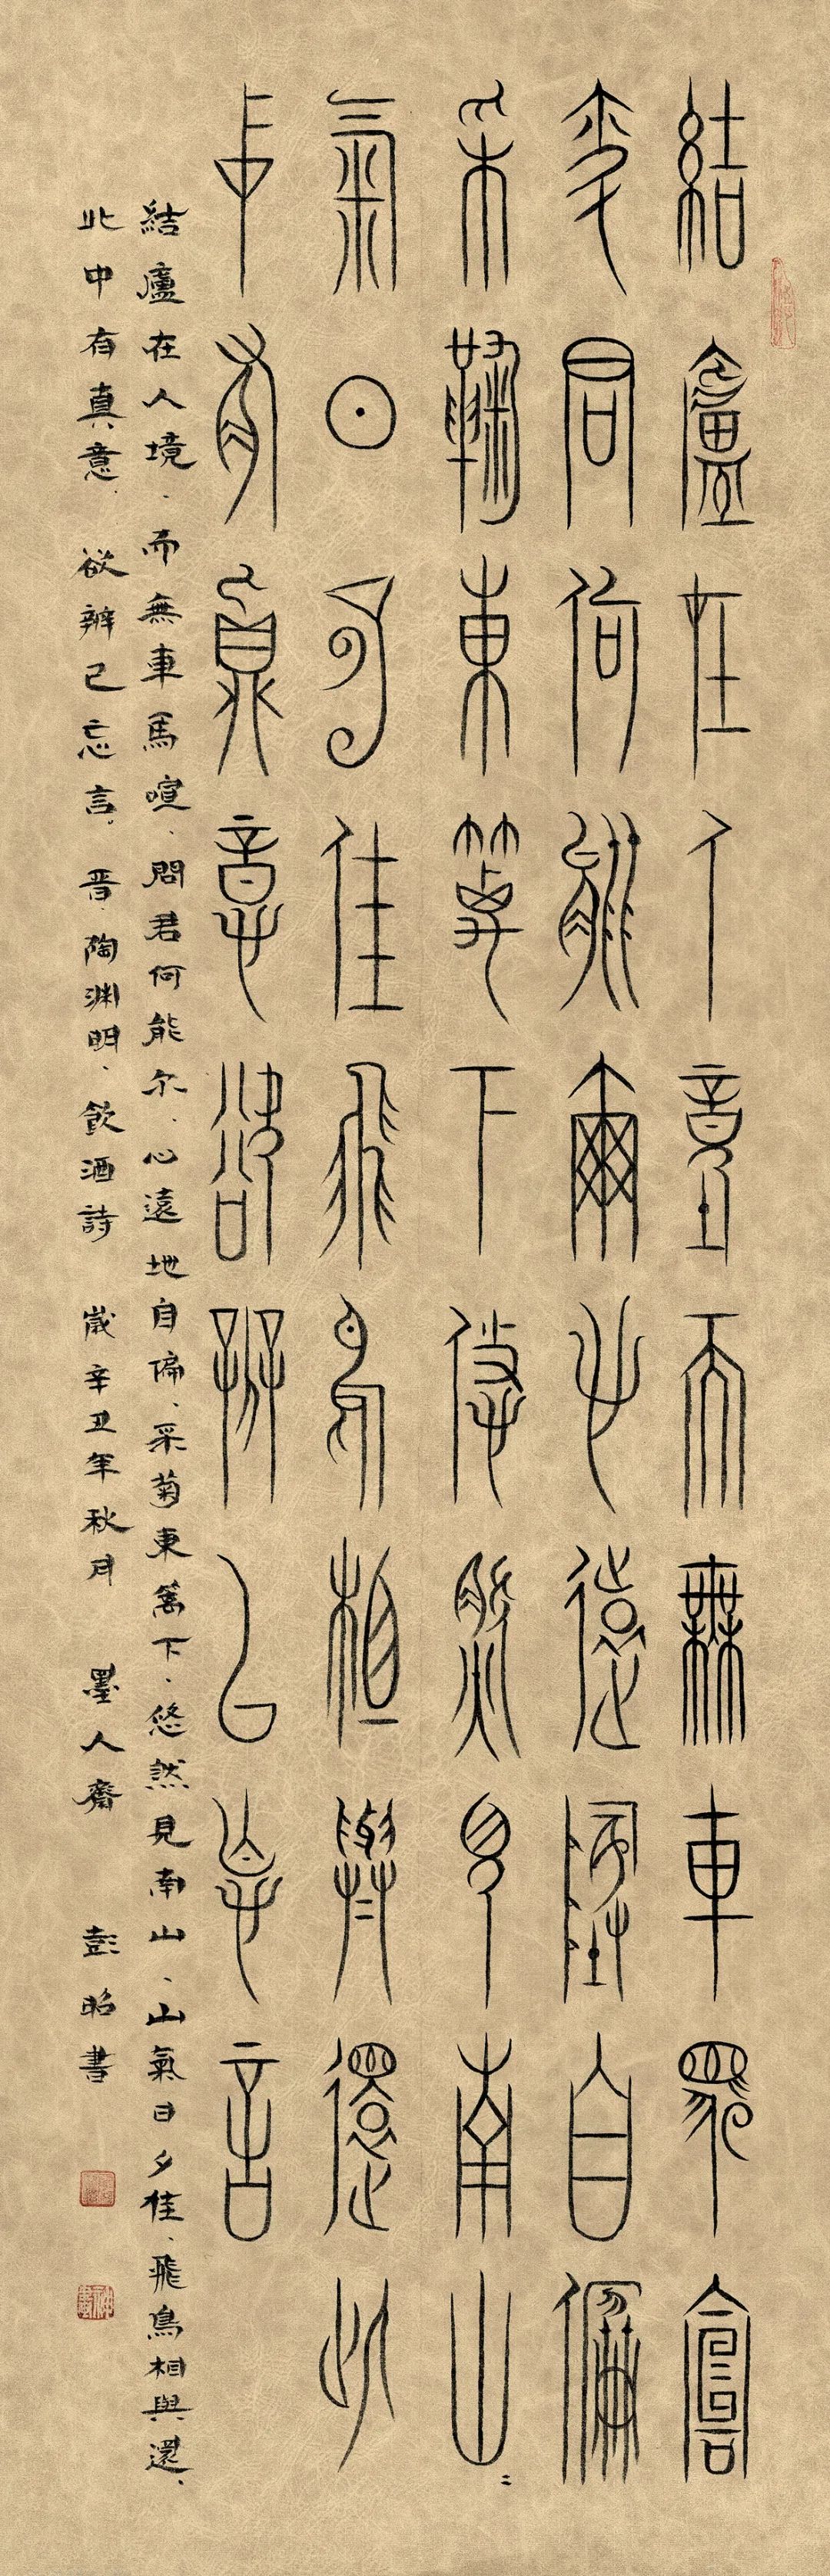 結廬在人境而無車馬喧
問君何能爾心遠地自偏
采鞠東籬下悠然見南山〻
氣日夕佳飛鳥相與還此
中有真意欲辨已忘言
結廬在人境、而無車馬喧、問君何能尔、心遠地自偏、采菊東篱下、悠然見南山、山氣日夕佳、飛鳥相與還、
此中有真意、欲辨已忘言。晋、陶渊明、飲酒詩 歲辛丑年秋月 墨人齋 彭昭書